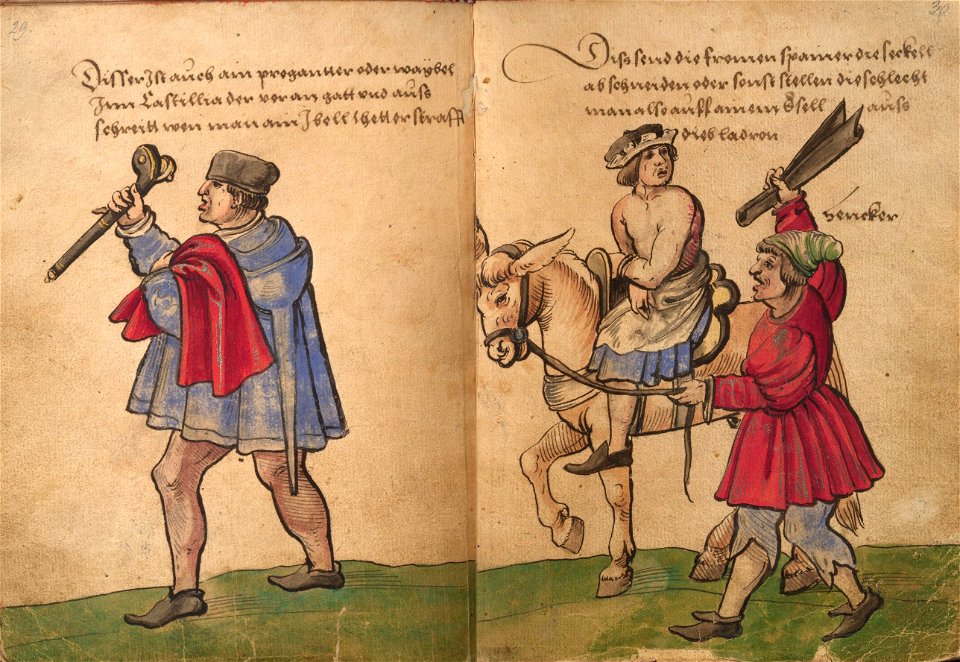 29.
Disser Ist auch ain pregantter oder waybel
Inn Castillia der voran gatt vnd auss
schreitt wen man ain Ibell thetter strafft
30
Diss send die fromen spanier die seckell
abschneiden oder sonst stellen die schlecht
man also auff ainem Esell auss
dieb ladron
hencker